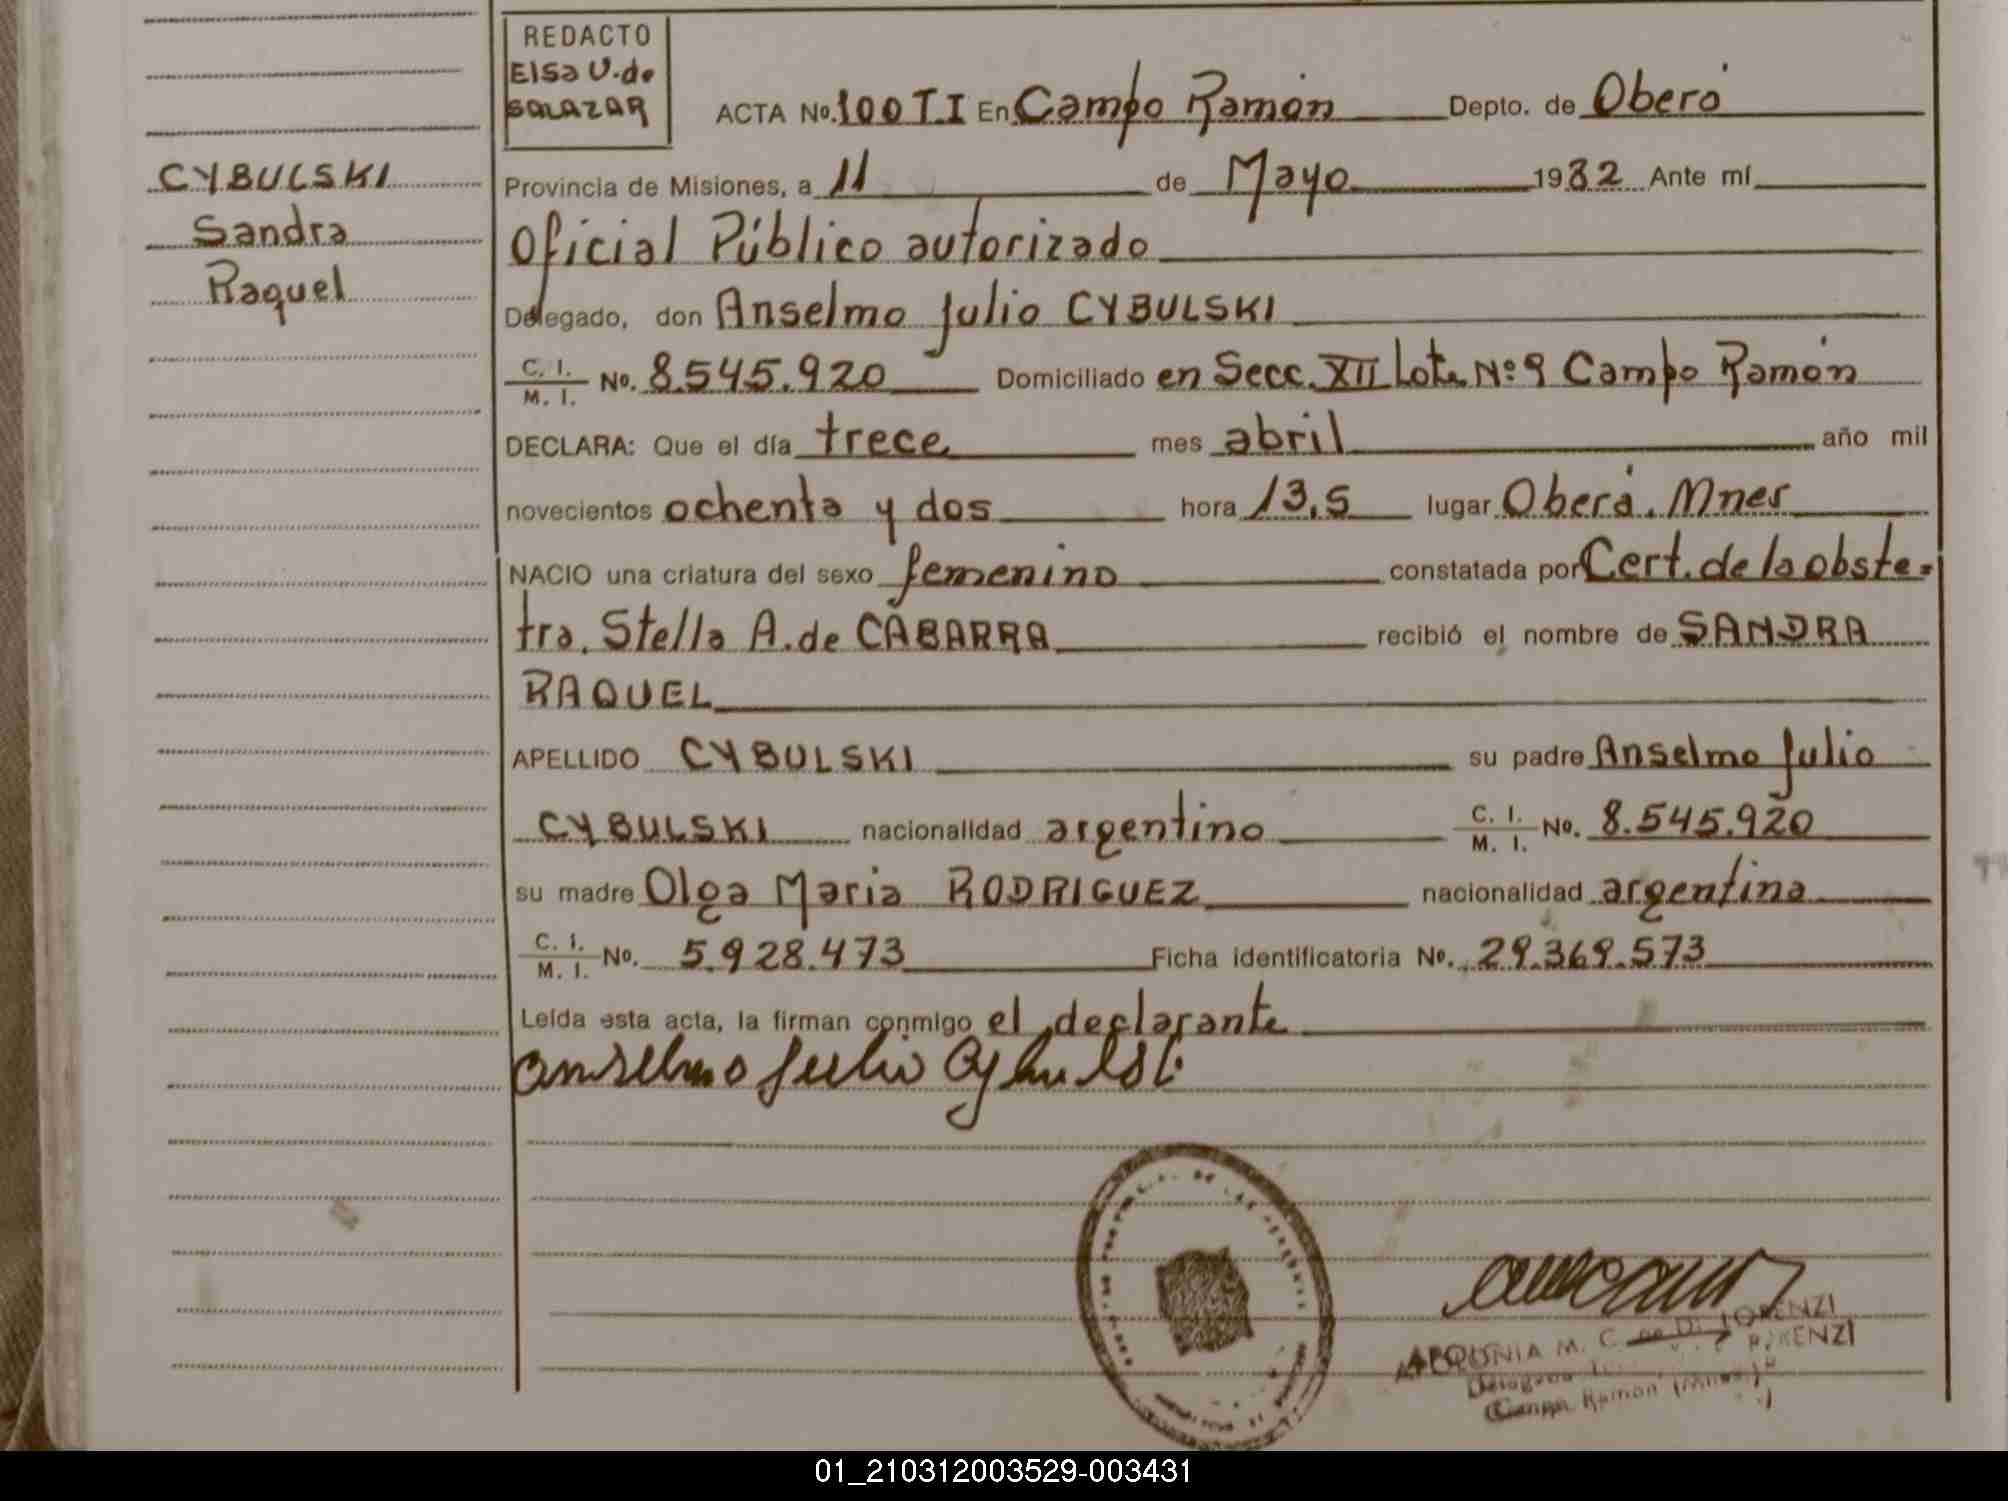 REDACTO
Elsa V. de
SALAZAR
ACTA No. 100 T.I En Campo Ramón Depto. de Oberá
CYBULSKI
Sandra
Raquel
Provincia de Misiones, a 11 de Mayo 1982 Ante mí
Oficial Público autorizado
Delegado, don Anselmo Julio CYBULSKI
C. I. / M. I. No. 8.545.920 Domiciliado en Secc. XII Lote Nº 9 Campo Ramón
DECLARA: Que el día trece mes abril año mil
novecientos ochenta y dos hora 13,5 lugar Oberá. Mnes
NACIO una criatura del sexo femenino constatada por Cert. de la obste=
tra. Stella A. de CABARRA recibió el nombre de SANDRA
RAQUEL
APELLIDO CYBULSKI su padre Anselmo Julio
CYBULSKI nacionalidad argentino C. I. / M. I. No. 8.545.920
su madre Olga Maria RODRIGUEZ nacionalidad argentina
C. I. / M. I. No. 5.928.473 Ficha identificatoria No. 29.369.573
Leída esta acta, la firman conmigo el declarante
Anselmo Julio Cybulski
APOLONIA M. C. de DI LORENZI
Campo Ramón (Mnes.)
01_210312003529-003431